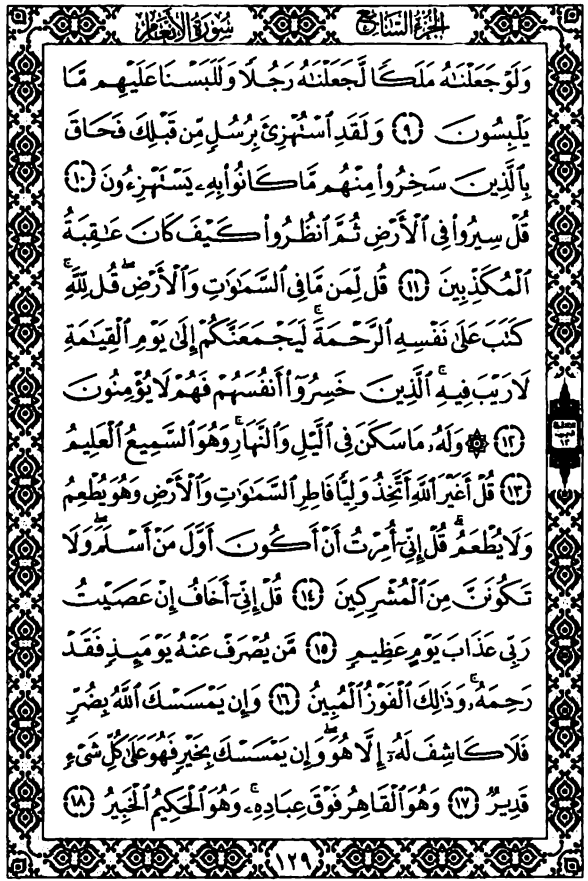 سُورَةُ الأَنْعَام
الجُزْءُ السَّابِع
وَلَوْ جَعَلْنَٰهُ مَلَكًا لَّجَعَلْنَٰهُ رَجُلًا وَلَلَبَسْنَا عَلَيْهِم مَّا
يَلْبِسُونَ ۝٩ وَلَقَدِ ٱسْتُهْزِئَ بِرُسُلٍ مِّن قَبْلِكَ فَحَاقَ
بِٱلَّذِينَ سَخِرُوا۟ مِنْهُم مَّا كَانُوا۟ بِهِۦ يَسْتَهْزِءُونَ ۝١٠
قُلْ سِيرُوا۟ فِى ٱلْأَرْضِ ثُمَّ ٱنظُرُوا۟ كَيْفَ كَانَ عَٰقِبَةُ
ٱلْمُكَذِّبِينَ ۝١١ قُل لِّمَن مَّا فِى ٱلسَّمَٰوَٰتِ وَٱلْأَرْضِ ۖ قُل لِّلَّهِ ۚ
كَتَبَ عَلَىٰ نَفْسِهِ ٱلرَّحْمَةَ ۚ لَيَجْمَعَنَّكُمْ إِلَىٰ يَوْمِ ٱلْقِيَٰمَةِ
لَا رَيْبَ فِيهِ ۚ ٱلَّذِينَ خَسِرُوٓا۟ أَنفُسَهُمْ فَهُمْ لَا يُؤْمِنُونَ
۝١٢ ۞ وَلَهُۥ مَا سَكَنَ فِى ٱلَّيْلِ وَٱلنَّهَارِ ۚ وَهُوَ ٱلسَّمِيعُ ٱلْعَلِيمُ
۝١٣ قُلْ أَغَيْرَ ٱللَّهِ أَتَّخِذُ وَلِيًّا فَاطِرِ ٱلسَّمَٰوَٰتِ وَٱلْأَرْضِ وَهُوَ يُطْعِمُ
وَلَا يُطْعَمُ ۗ قُلْ إِنِّىٓ أُمِرْتُ أَنْ أَكُونَ أَوَّلَ مَنْ أَسْلَمَ ۖ وَلَا
تَكُونَنَّ مِنَ ٱلْمُشْرِكِينَ ۝١٤ قُلْ إِنِّىٓ أَخَافُ إِنْ عَصَيْتُ
رَبِّى عَذَابَ يَوْمٍ عَظِيمٍ ۝١٥ مَّن يُصْرَفْ عَنْهُ يَوْمَئِذٍ فَقَدْ
رَحِمَهُۥ ۚ وَذَٰلِكَ ٱلْفَوْزُ ٱلْمُبِينُ ۝١٦ وَإِن يَمْسَسْكَ ٱللَّهُ بِضُرٍّ
فَلَا كَاشِفَ لَهُۥٓ إِلَّا هُوَ ۖ وَإِن يَمْسَسْكَ بِخَيْرٍ فَهُوَ عَلَىٰ كُلِّ شَىْءٍ
قَدِيرٌ ۝١٧ وَهُوَ ٱلْقَاهِرُ فَوْقَ عِبَادِهِۦ ۚ وَهُوَ ٱلْحَكِيمُ ٱلْخَبِيرُ ۝١٨
١٢٩